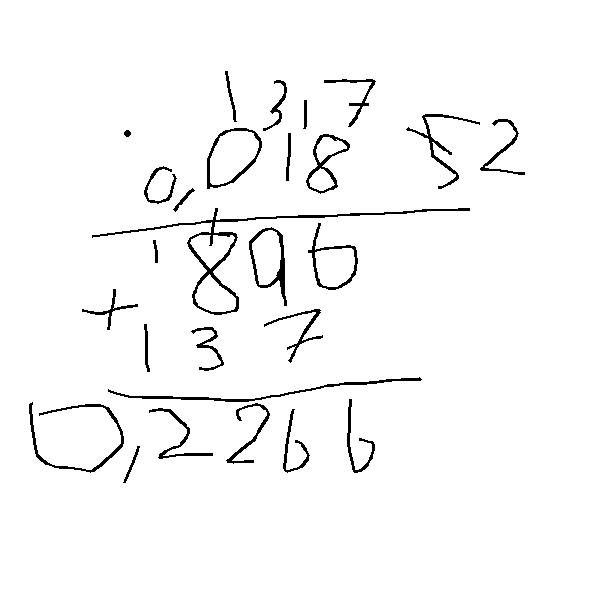 1 3 1 7
0,018 52
1 1
896
+
137
0,2266